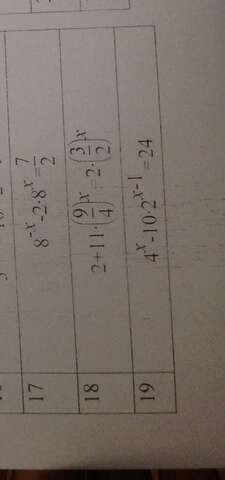 17 8^{-x}-2·8^x=\frac{7}{2}
18 2+11·\left(\frac{9}{4}\right)^x=2·\left(\frac{3}{2}\right)^x
19 4^x-10·2^{x-1}=24